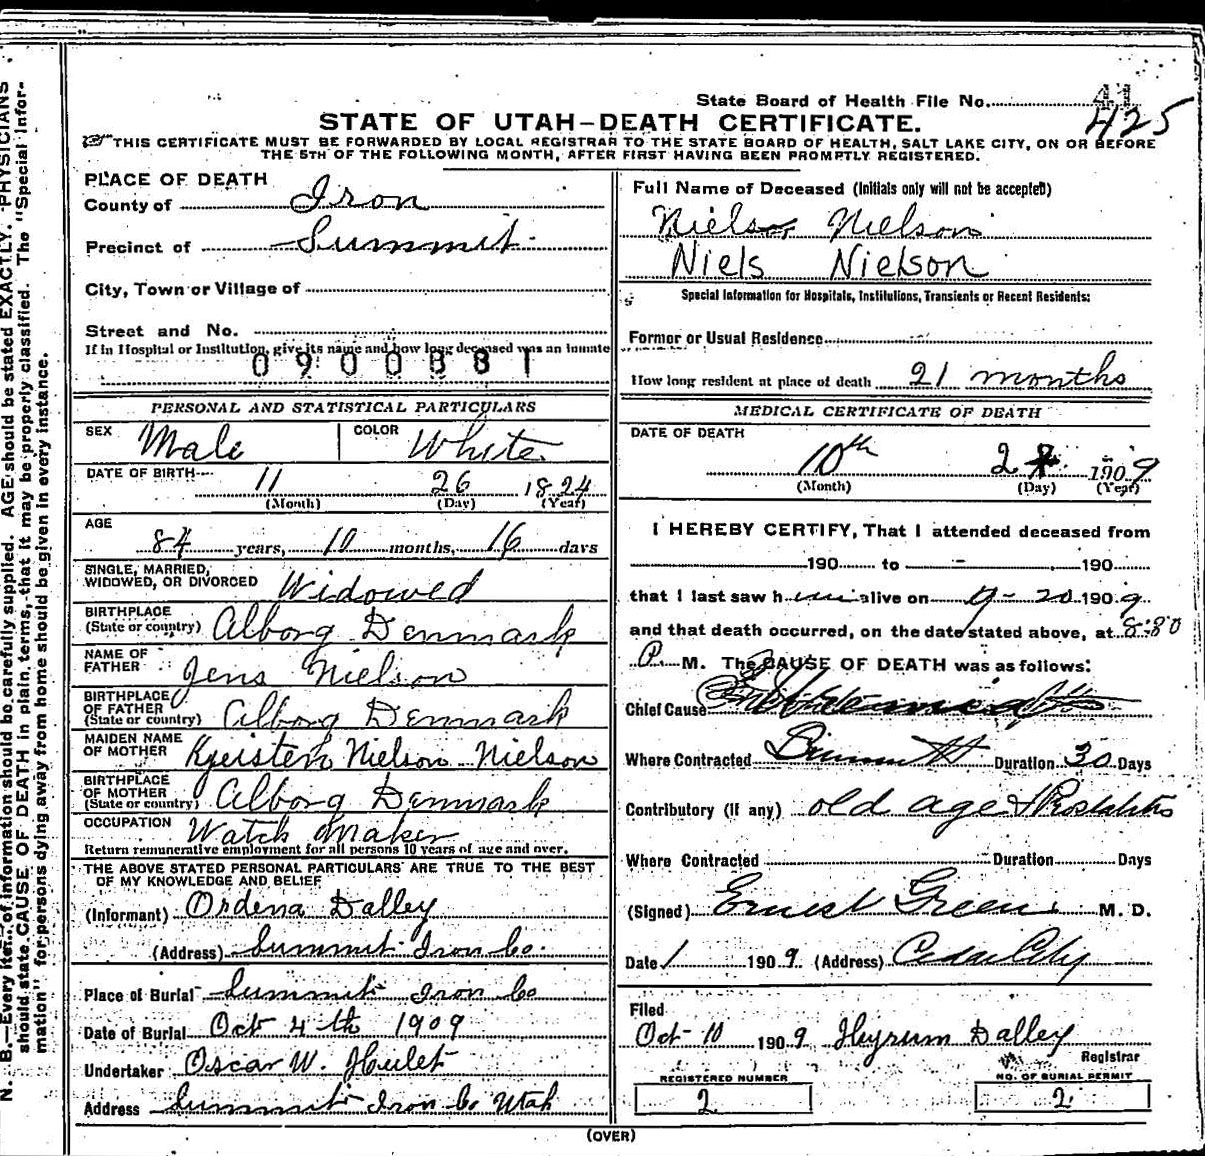 State Board of Health File No. 41
425
STATE OF UTAH—DEATH CERTIFICATE.
THIS CERTIFICATE MUST BE FORWARDED BY LOCAL REGISTRAR TO THE STATE BOARD OF HEALTH, SALT LAKE CITY, ON OR BEFORE
THE 5TH OF THE FOLLOWING MONTH, AFTER FIRST HAVING BEEN PROMPTLY REGISTERED.
PLACE OF DEATH
County of Iron
Precinct of Summit
City, Town or Village of
Street and No.
If in Hospital or Institution, give its name and how long deceased was an inmate
0900881
PERSONAL AND STATISTICAL PARTICULARS
SEX Male COLOR White
DATE OF BIRTH 11 26 1824
(Month) (Day) (Year)
AGE
84 years, 10 months, 16 days
SINGLE, MARRIED,
WIDOWED, OR DIVORCED Widowed
BIRTHPLACE
(State or country) Alborg Denmark
NAME OF
FATHER Jens Nielson
BIRTHPLACE
OF FATHER
(State or country) Alborg Denmark
MAIDEN NAME
OF MOTHER Nielson Nielson
BIRTHPLACE
OF MOTHER
(State or country) Alborg Denmark
OCCUPATION Watch Maker
Return remunerative employment for all persons 10 years of age and over.
THE ABOVE STATED PERSONAL PARTICULARS ARE TRUE TO THE BEST
OF MY KNOWLEDGE AND BELIEF
(Informant) Ordena Dalley
(Address) Summit Iron Co.
Place of Burial Summit Iron Co
Date of Burial Oct 4th 1909
Undertaker Oscar W. Hulet
Address Summit Iron Co Utah
Full Name of Deceased (Initials only will not be accepted)
Nielson
Niels Nielson
Special Information for Hospitals, Institutions, Transients or Recent Residents:
Former or Usual Residence
How long resident at place of death 21 months
MEDICAL CERTIFICATE OF DEATH
DATE OF DEATH
10th 2 1909
(Month) (Day) (Year)
I HEREBY CERTIFY, That I attended deceased from
190 to 190
that I last saw him alive on 9-20 1909
and that death occurred, on the date stated above, at 8:30
P. M. The CAUSE OF DEATH was as follows:
Chief Cause
Where Contracted Summit Duration 30 Days
Contributory (if any) old age &
Where Contracted Duration Days
(Signed) Ernest Green M. D.
Date 1 1909 (Address) Cedar City
Filed
Oct 10 1909 Hyrum Dalley
Registrar
REGISTERED NUMBER
2
NO. OF BURIAL PERMIT
2
(OVER)
N. B.—Every item of information should be carefully supplied. AGE should be stated EXACTLY. PHYSICIANS
should state CAUSE OF DEATH in plain terms, that it may be properly classified. The "Special Infor-
mation" for persons dying away from home should be given in every instance.